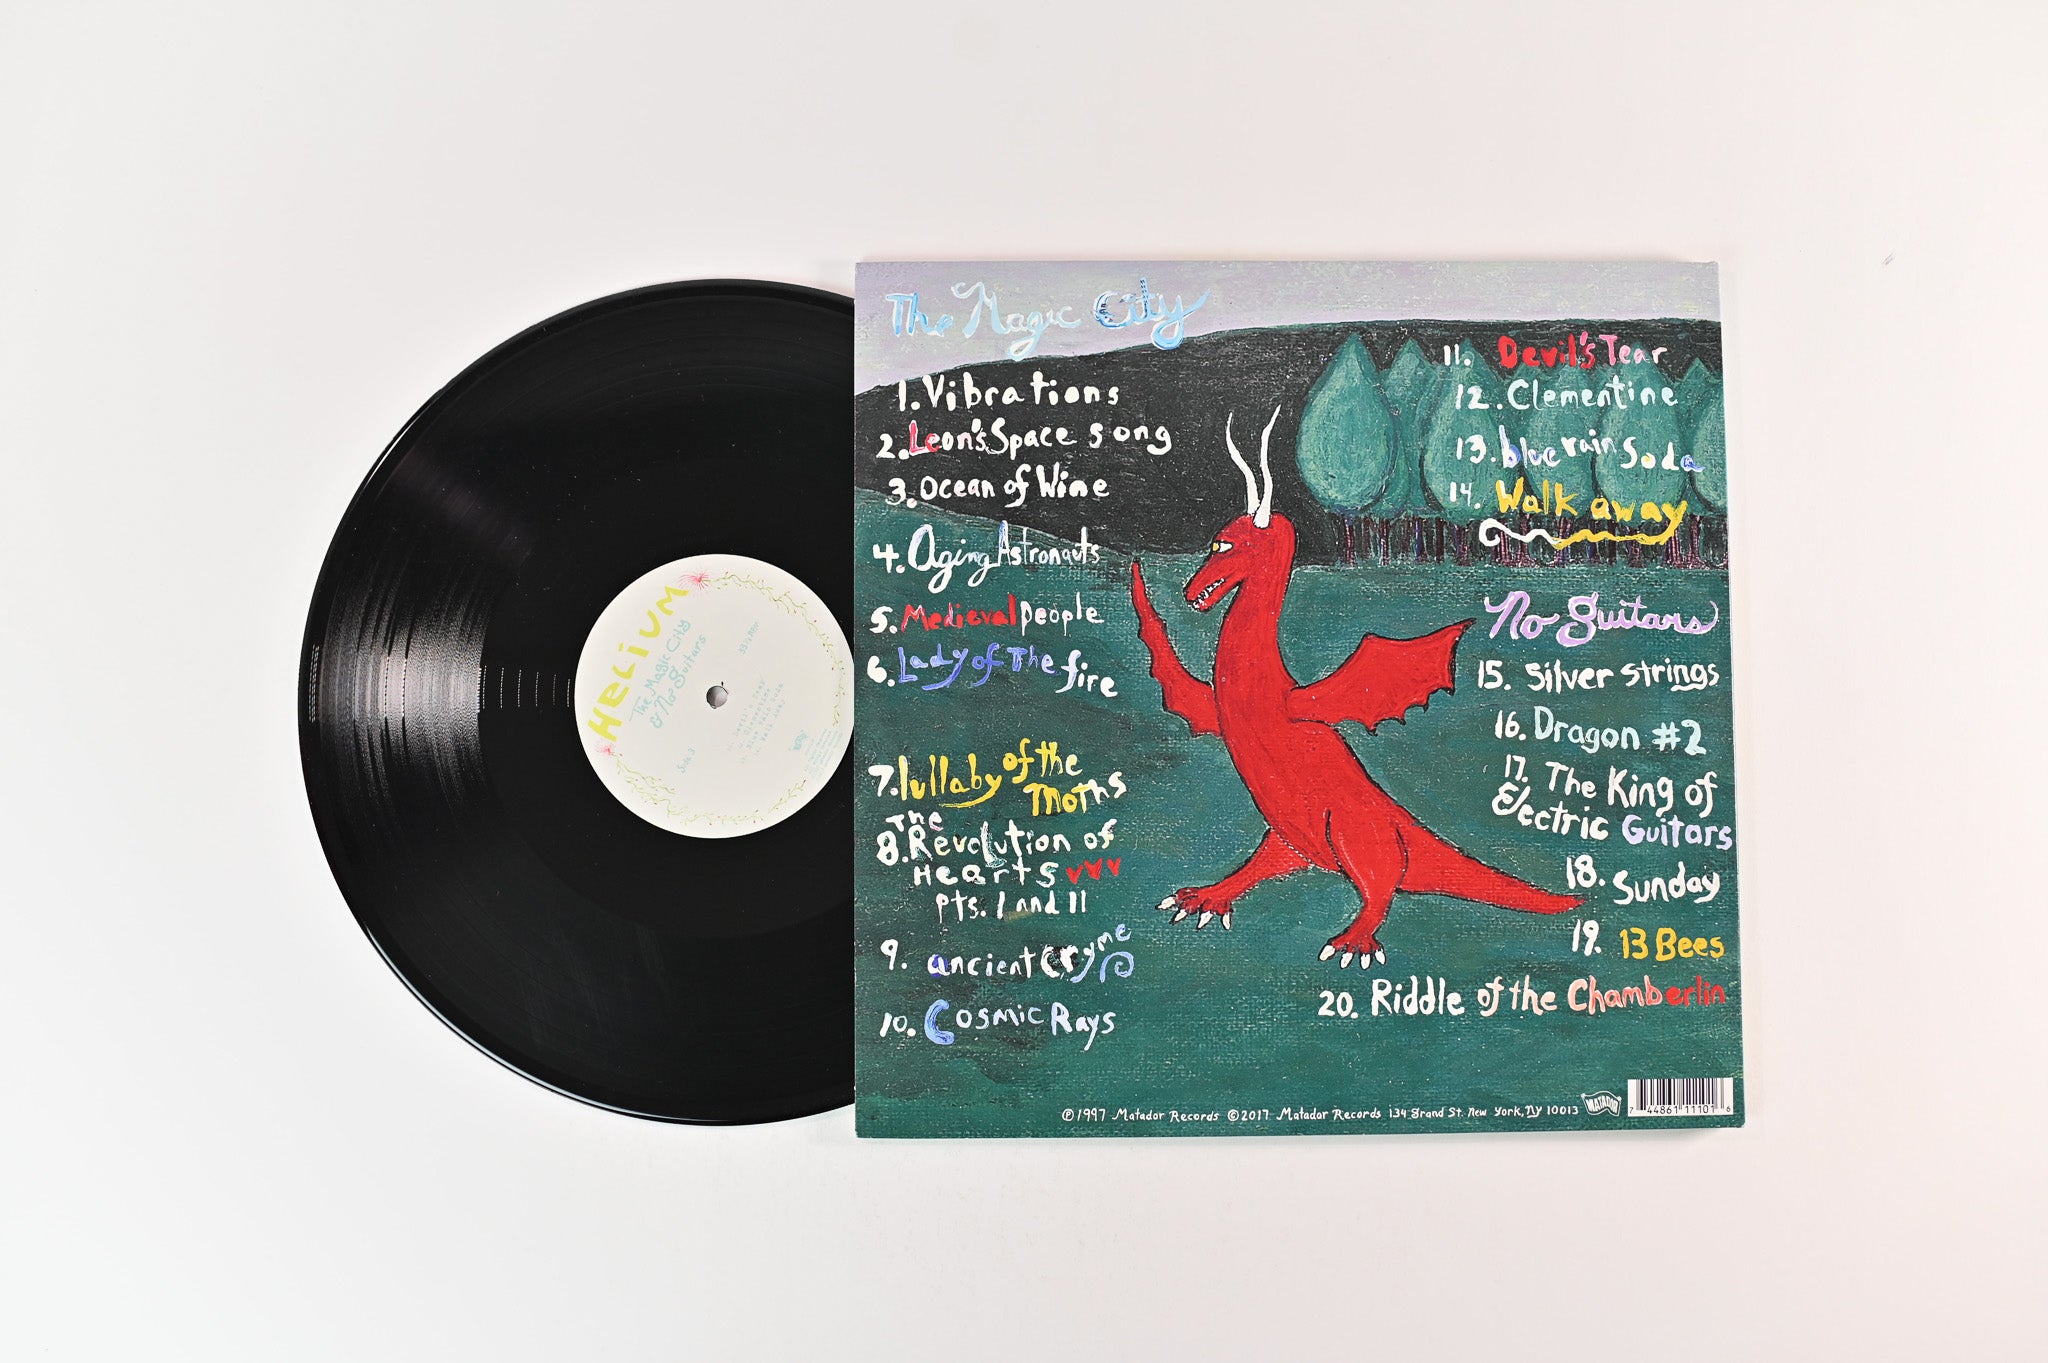 HELIUM
The Magic City
& No Guitars
33 ⅓ RPM
Side 3
The Magic City
1. Vibrations
2. Leon's Space Song
3. Ocean of Wine
4. Aging Astronauts
5. Medieval people
6. Lady of The fire
7. lullaby of the
Moths
8. The
Revolution of
Hearts
pts. I and II
9. ancient cryme
10. Cosmic Rays
11. Devil's Tear
12. Clementine
13. blue rain soda
14. Walk away
No guitars
15. Silver strings
16. Dragon #2
17. The King of
Electric Guitars
18. Sunday
19. 13 Bees
20. Riddle of the Chamberlin
℗ 1997 Matador Records © 2017 Matador Records 134 Grand St. New York, NY 10013
MATADOR
7 44861 11101 6